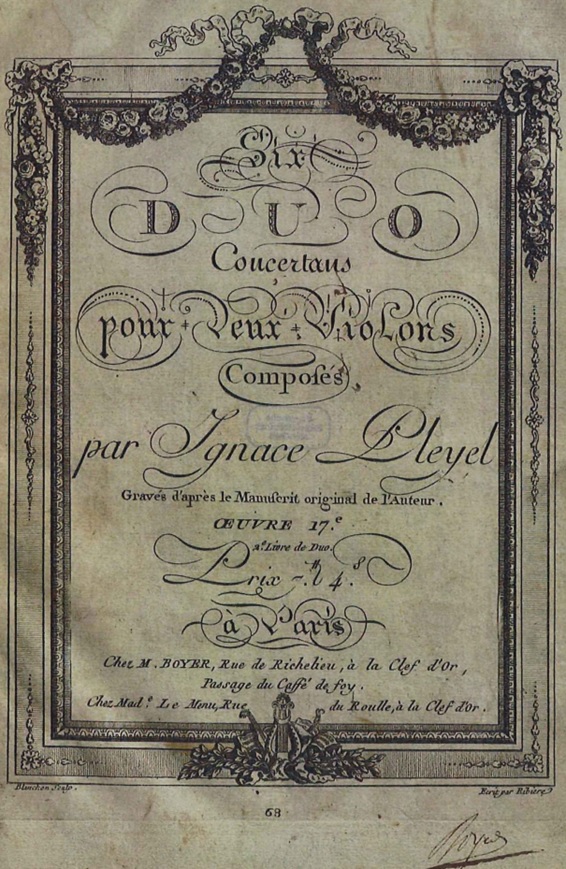 Six
DUO
Concertans
pour Deux Violons
Composés
par Ignace Pleyel
Gravés d'après le Manuscrit original de l'Auteur.
ŒUVRE 17.e
2.e Livre de Duo.
Prix 7.tt 4.s
à Paris
Chez M. BOYER, Rue de Richelieu, à la Clef d'Or,
Passage du Caffé de foy.
Chez Mad.e Le Menu, Rue du Roulle, à la Clef d'Or.
Blanchon Sculp.
Ecrit par Ribiere
68
Boyer